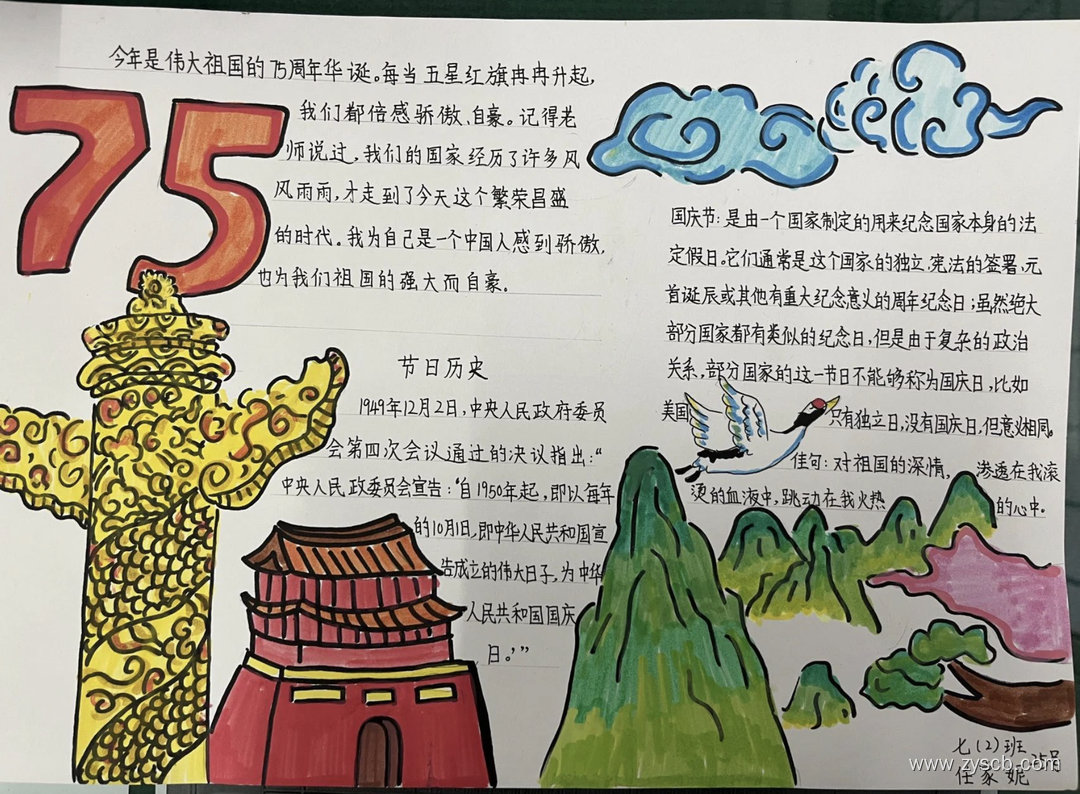 75
今年是伟大祖国的75周年华诞。每当五星红旗冉冉升起,
我们都倍感骄傲、自豪。记得老
师说过,我们的国家经历了许多风
风雨雨,才走到了今天这个繁荣昌盛
的时代。我为自己是一个中国人感到骄傲,
也为我们祖国的强大而自豪。
节日历史
1949年12月2日,中央人民政府委员
会第四次会议通过的决议指出:“
中央人民政委员会宣告:‘自1950年起,即以每年
的10月1日,即中华人民共和国宣
告成立的伟大日子,为中华
人民共和国国庆
日。’”
国庆节:是由一个国家制定的用来纪念国家本身的法
定假日。它们通常是这个国家的独立、宪法的签署、元
首诞辰或其他有重大纪念意义的周年纪念日;虽然绝大
部分国家都有类似的纪念日,但是由于复杂的政治
关系,部分国家的这一节日不能够称为国庆日,比如
美国 只有独立日,没有国庆日,但意义相同。
佳句:对祖国的深情, 渗透在我滚
烫的血液中,跳动在我火热 的心中。
七(2)班
任家妮 25号
www.zyscb.com